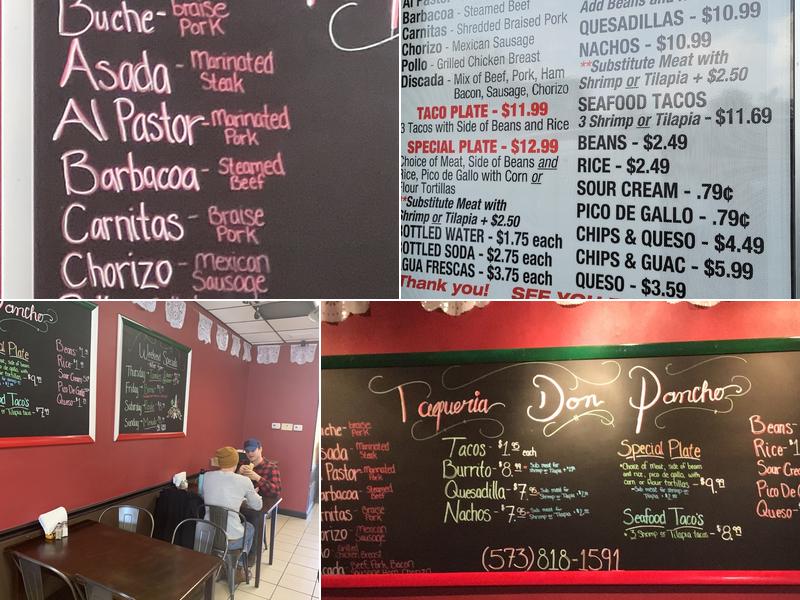 Buche - braise
Pork
Asada - Marinated
Steak
Al Pastor - Marinated
Pork
Barbacoa - Steamed
Beef
Carnitas - Braise
Pork
Chorizo - Mexican
Sausage
Al Pastor
Barbacoa - Steamed Beef
Carnitas - Shredded Braised Pork
Chorizo - Mexican Sausage
Pollo - Grilled Chicken Breast
Discada - Mix of Beef, Pork, Ham
Bacon, Sausage, Chorizo
TACO PLATE - $11.99
3 Tacos with Side of Beans and Rice
SPECIAL PLATE - $12.99
Choice of Meat, Side of Beans and
Rice, Pico de Gallo with Corn or
Flour Tortillas
**Substitute Meat with
Shrimp or Tilapia + $2.50
BOTTLED WATER - $1.75 each
BOTTLED SODA - $2.75 each
AGUA FRESCAS - $3.75 each
Thank you! SEE YOU
Add Beans and
QUESADILLAS - $10.99
NACHOS - $10.99
**Substitute Meat with
Shrimp or Tilapia + $2.50
SEAFOOD TACOS
3 Shrimp or Tilapia - $11.69
BEANS - $2.49
RICE - $2.49
SOUR CREAM - .79¢
PICO DE GALLO - .79¢
CHIPS & QUESO - $4.49
CHIPS & GUAC - $5.99
QUESO - $3.59
Pancho
Plate
Beans
Rice
Sour Cream
Pico De Gallo
Queso
Tacos
Weekend Specials
Thursday
Friday
Saturday
Sunday
Taqueria Don Pancho
uche - braise
Pork
sada - Marinated
Steak
Pastor - Marinated
Pork
arbacoa - Steamed
Beef
rnitas - Braise
Pork
orizo - Mexican
Sausage
Grilled
Chicken Breast
cada - Beef, Pork, Bacon
Tacos - $1.95 each
Burrito - $8
Quesadilla - $7
Nachos - $7
Special Plate
Choice of meat, side of beans
and rice, pico de gallo, with
corn or flour tortillas - $9.99
Seafood Taco's
3 Shrimp or Tilapia tacos - $8.99
Beans -
Rice - $1
Sour Cream
Pico De G
Queso -
(573)818-1591